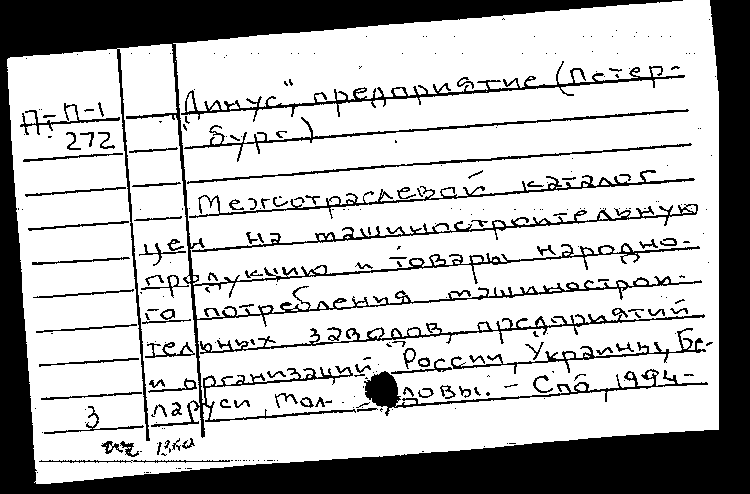 Пт П-1
272
"Динус", предприятие (Петер-
бург)
Межотраслевой каталог
цен на машиностроительную
продукцию и товары народно-
го потребления машинострои-
тельных заводов, предприятий
и организаций России, Украины, Бе-
ларуси, Мол довы. - Спб, 1994-
3